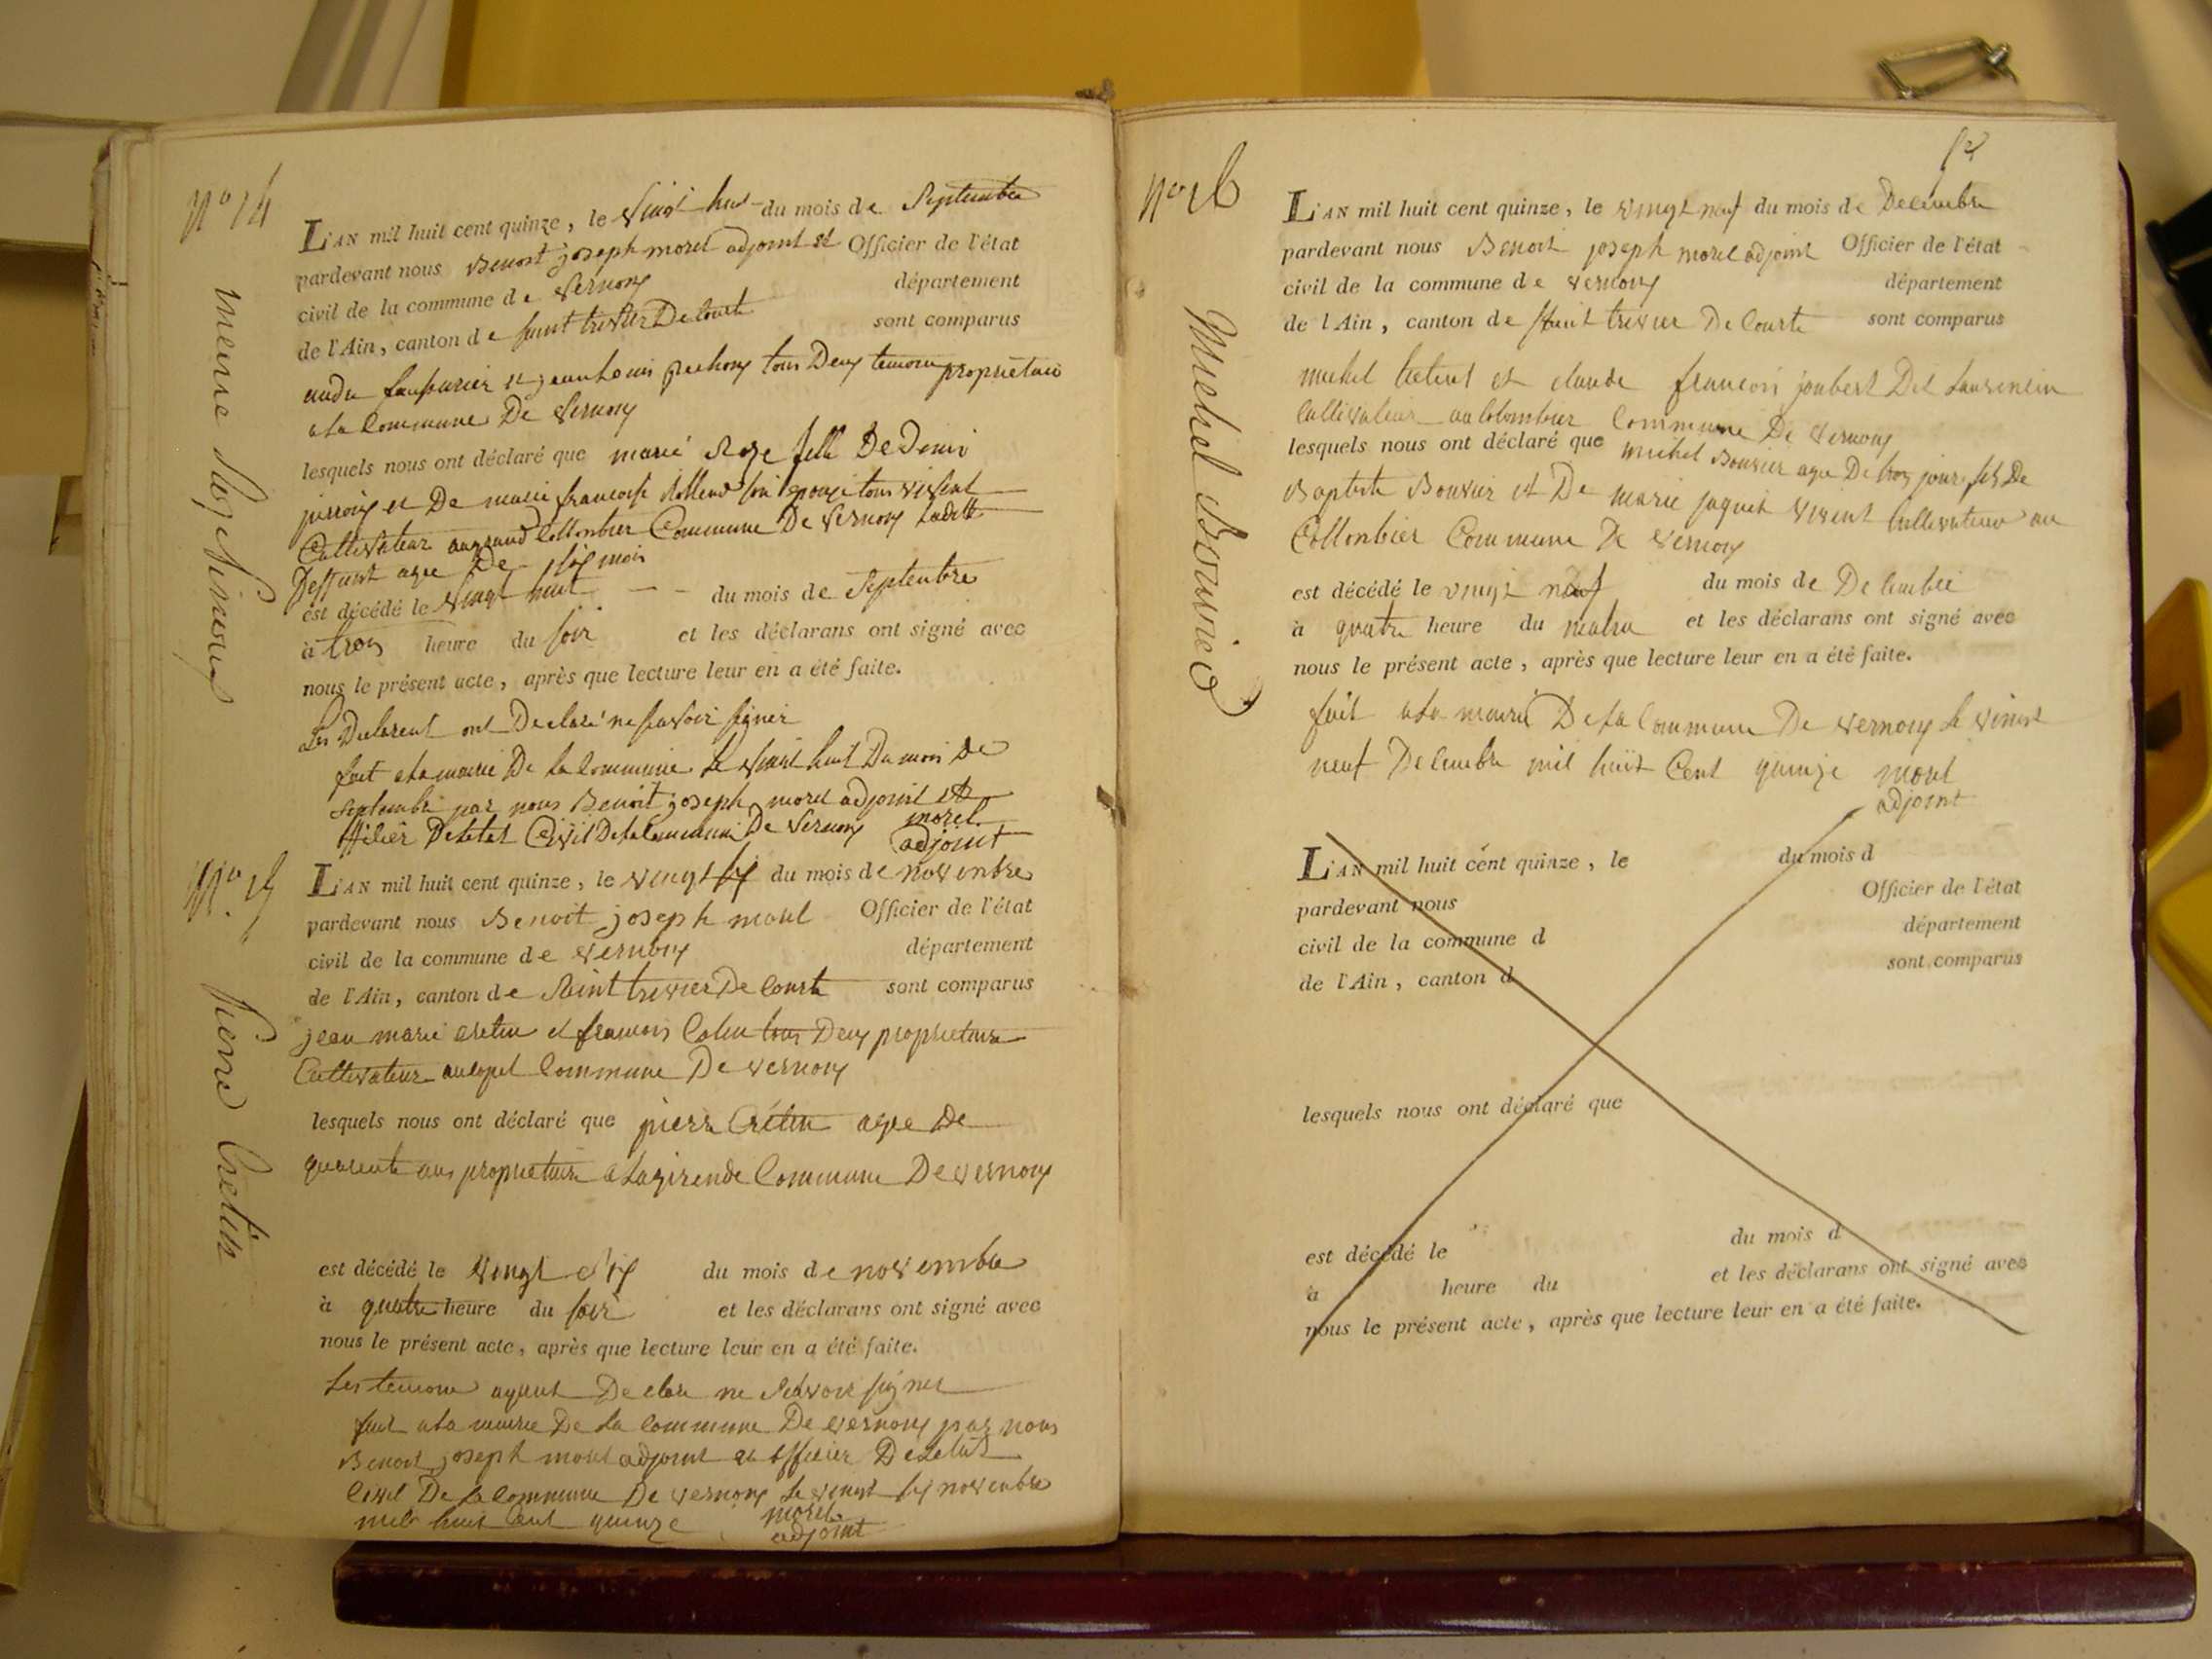 N.o 14
L'AN mil huit cent quinze, le vingt huit du mois de Septembre
pardevant nous Benoit joseph morel adjoint et Officier de l'état
civil de la commune de vernoux département
de l'Ain, canton de saint trivier De Courte sont comparus
et jean Louis tous Deux temoin proprietaire
a la Commune De vernoux
lesquels nous ont déclaré que marie Roze fille De Denis
et De marie francoise Rolland son epouze tous vivent
Cultivateur au grand Collonbier Commune De vernoux Laditte
Deffunt agee De six mois
est décédé le vingt huit du mois de Septembre
à trois heure du soir et les déclarans ont signé avec
nous le présent acte, après que lecture leur en a été faite.
Les Declarent ont Declaré ne savoir signer
fait a la mairie De la Commune Le vingt huit Du mois De
Septembre par nous Benoit joseph morel adjoint et
officier De letat Civil De la Commune De vernoux morel
adjoint
N.o 15
Pierre Cretin
L'AN mil huit cent quinze, le vingt six du mois de novembre
pardevant nous Benoit joseph morel Officier de l'état
civil de la commune de vernoux département
de l'Ain, canton de Saint trivier De Courte sont comparus
jean marie cretin et francois Colin tous Deux proprietaire
Cultivateur Commune De vernoux
lesquels nous ont déclaré que pierre Crétin agee De
quarente ans proprietaire a Commune De vernoux
est décédé le vingt six du mois de novembre
à quatre heure du soir et les déclarans ont signé avec
nous le présent acte, après que lecture leur en a été faite.
Les temoins ayant Declare ne Savoir signer
fait a la mairie De La Commune De vernoux par nous
Benoit joseph morel adjoint et officier De Letat
Civil De La Commune De vernoux Le vingt six novembre
mile huit Cent quinze morel
adjoint
N.o 16
Michel Bouvier
L'AN mil huit cent quinze, le vingt neuf du mois de Decembre
pardevant nous Benoit joseph morel adjoint Officier de l'état
civil de la commune de vernoux département
de l'Ain, canton de Saint trivier De Courte sont comparus
michel et claude francois joubert Dit Laurencin
Cultivateur au Colombier Commune De vernoux
lesquels nous ont déclaré que michel Bouvier age De trois jours fils De
Baptiste Bouvier et De marie jaquet vivent Cultivateur au
Collonbier Commune De vernoux
est décédé le vingt neuf du mois de Decembre
à quatre heure du matin et les déclarans ont signé avec
nous le présent acte, après que lecture leur en a été faite.
fait a la mairie De La Commune De vernoux Le vingt
neuf Decembre mil huit Cent quinze morel
adjoint
L'AN mil huit cent quinze, le du mois d
pardevant nous Officier de l'état
civil de la commune d département
de l'Ain, canton d sont comparus
lesquels nous ont déclaré que
est décédé le du mois d
à heure du et les déclarans ont signé avec
nous le présent acte, après que lecture leur en a été faite.